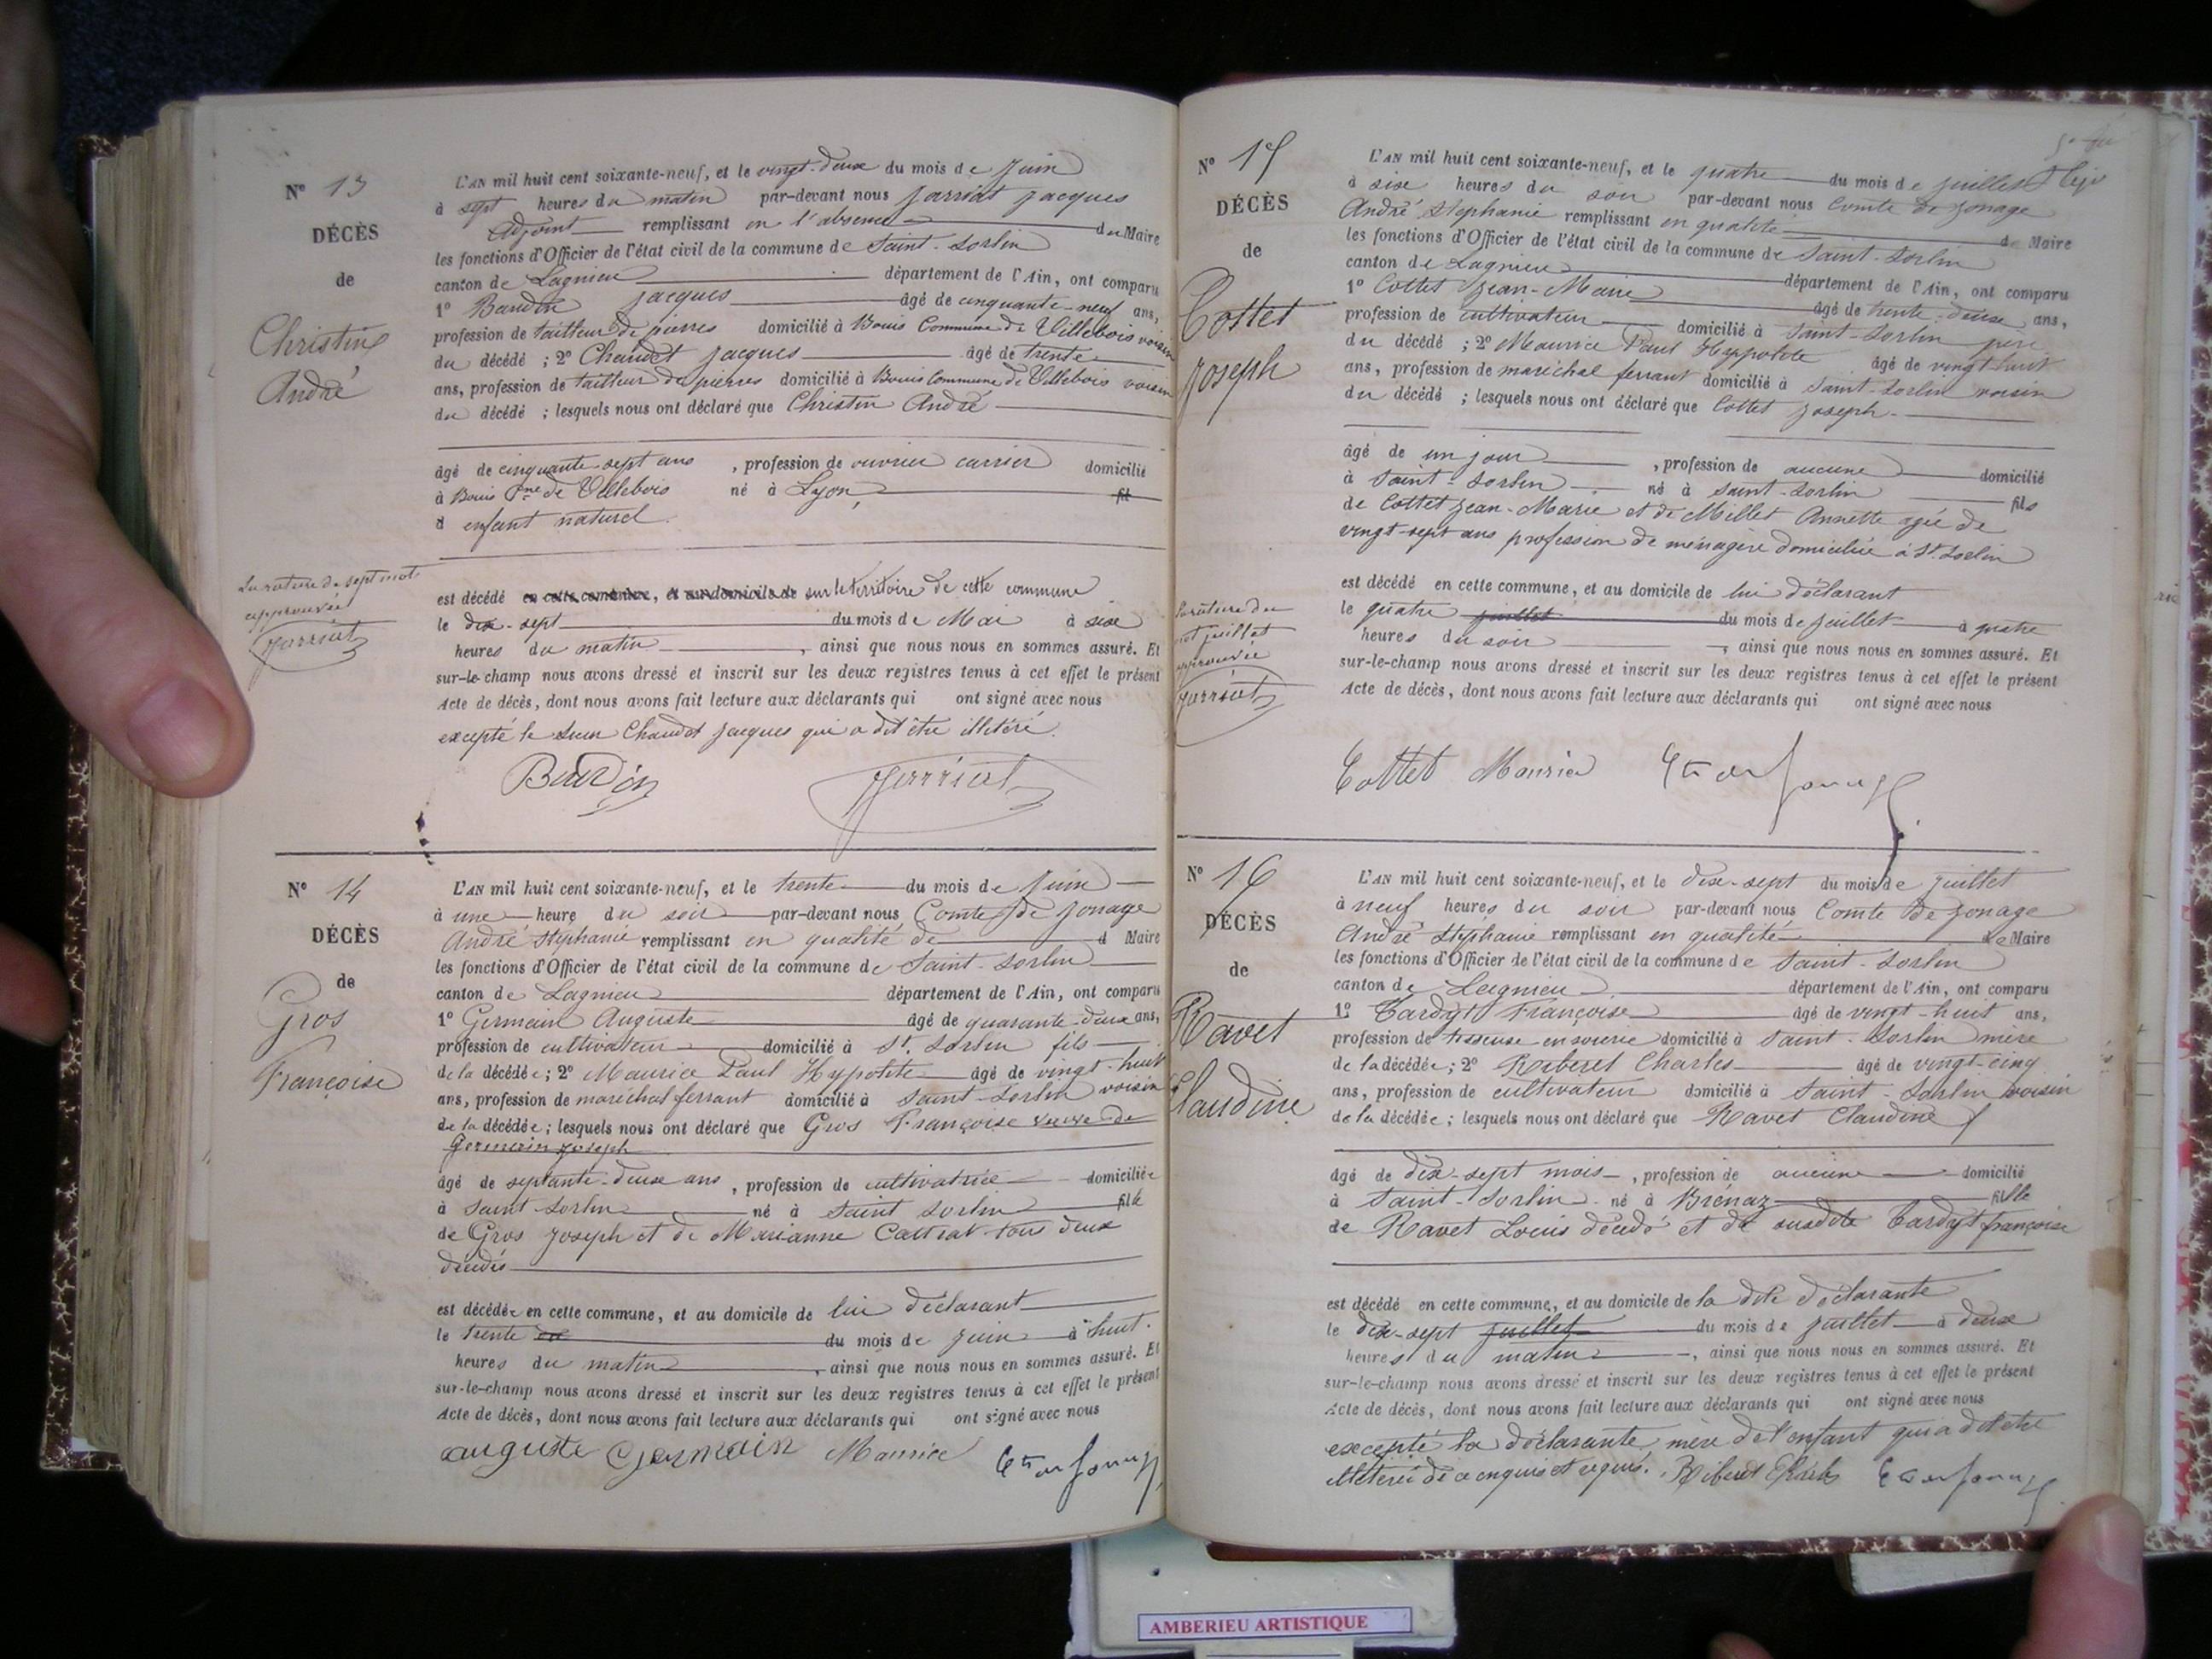 N° 13
DÉCÈS
de
Christin
André
L'AN mil huit cent soixante-neuf, et le vingt-deux du mois de Juin
à sept heures du matin par-devant nous Jarriat Jacques
Adjoint remplissant en l'absence du Maire
les fonctions d'Officier de l'état civil de la commune de Saint-Sorlin
canton de Lagnieu département de l'Ain, ont comparu
1° Baudin Jacques âgé de cinquante-neuf ans,
profession de tailleur de pierres domicilié à Bouis Commune de Villebois voisin
du décédé ; 2° Chaudet Jacques âgé de trente
ans, profession de tailleur de pierres domicilié à Bouis Commune de Villebois voisin
du décédé ; lesquels nous ont déclaré que Christin André
âgé de cinquante-sept ans , profession de ouvrier carrier domicilié
à Bouis Cne de Villebois né à Lyon fil
d enfant naturel
La rature de sept mots
approuvée
Jarriat
est décédé en cette commune, et au domicile de sur le territoire de cette commune
le dix-sept du mois de Mai à six
heures du matin , ainsi que nous nous en sommes assuré. Et
sur-le-champ nous avons dressé et inscrit sur les deux registres tenus à cet effet le présent
Acte de décès, dont nous avons fait lecture aux déclarants qui ont signé avec nous
excepté le Sieur Chaudet Jacques qui a dit être illétéré.
Baudin Jarriat
N° 14
DÉCÈS
de
Gros
Françoise
L'AN mil huit cent soixante-neuf, et le trente du mois de Juin
à une heure du soir par-devant nous Comte de Jonage
André Stéphanie remplissant en qualité de d Maire
les fonctions d'Officier de l'état civil de la commune de Saint-Sorlin
canton de Lagnieu département de l'Ain, ont comparu
1° Germain Auguste âgé de quarante-deux ans,
profession de cultivateur domicilié à St. Sorlin fils
de la décédée; 2° Maurice Paul Hypolite âgé de vingt-huit
ans, profession de maréchal ferrant domicilié à Saint-Sorlin voisin
de la décédée; lesquels nous ont déclaré que Gros Françoise veuve de
Germain Joseph
âgé de septante-deux ans , profession de cultivatrice domiciliée
à Saint-Sorlin né à Saint Sorlin fille
de Gros Joseph et de Marianne tous deux
décédés
est décédée en cette commune, et au domicile de lui déclarant
le trente du mois de Juin à huit
heures du matin , ainsi que nous nous en sommes assuré. Et
sur-le-champ nous avons dressé et inscrit sur les deux registres tenus à cet effet le présent
Acte de décès, dont nous avons fait lecture aux déclarants qui ont signé avec nous
auguste Germain Maurice
N° 15
DÉCÈS
de
Cottet
Joseph
L'AN mil huit cent soixante-neuf, et le quatre du mois de juillet
à six heures du soir par-devant nous Comte de Jonage
André Stéphanie remplissant en qualité de Maire
les fonctions d'Officier de l'état civil de la commune de Saint-Sorlin
canton de Lagnieu département de l'Ain, ont comparu
1° Cottet Jean-Marie âgé de trente-deux ans,
profession de cultivateur domicilié à Saint-Sorlin père
du décédé ; 2° Maurice Paul Hyppolite âgé de vingt-huit
ans, profession de maréchal ferrant domicilié à Saint-Sorlin voisin
du décédé ; lesquels nous ont déclaré que Cottet Joseph
âgé de un jour , profession de aucune domicilié
à Saint-Sorlin né à Saint-Sorlin fils
de Cottet Jean-Marie et de Millet Annette agée de
vingt-sept ans profession de ménagère domiciliée à St. Sorlin
La rature du
mot juillet
approuvée
Jarriat
est décédé en cette commune, et au domicile de lui déclarant
le quatre juillet du mois de juillet à quatre
heures du soir , ainsi que nous nous en sommes assuré. Et
sur-le-champ nous avons dressé et inscrit sur les deux registres tenus à cet effet le présent
Acte de décès, dont nous avons fait lecture aux déclarants qui ont signé avec nous
Cottet Maurice
N° 16
DÉCÈS
de
Ravet
Claudine
L'AN mil huit cent soixante-neuf, et le dix-sept du mois de juillet
à neuf heures du soir par-devant nous Comte de Jonage
André Stéphanie remplissant en qualité de Maire
les fonctions d'Officier de l'état civil de la commune de Saint-Sorlin
canton de Lagnieu département de l'Ain, ont comparu
1° Tardyt Françoise âgé de vingt-huit ans,
profession de tisseuse en soierie domicilié à Saint-Sorlin mère
de la décédée; 2° Riberet Charles âgé de vingt-cinq
ans, profession de cultivateur domicilié à Saint-Sorlin voisin
de la décédée; lesquels nous ont déclaré que Ravet Claudine
âgé de dix-sept mois , profession de aucune domicilié
à Saint-Sorlin né à Brénaz fille
de Ravet Louis décédé et de susdite Tardyt françoise
est décédé en cette commune, et au domicile de la dite déclarante
le dix-sept juillet du mois de juillet à deux
heures du matin , ainsi que nous nous en sommes assuré. Et
sur-le-champ nous avons dressé et inscrit sur les deux registres tenus à cet effet le présent
Acte de décès, dont nous avons fait lecture aux déclarants qui ont signé avec nous
excepté la déclarante, mère de l'enfant qui a dit être
illétérée de ce enquis et requis. Riberet Charles
AMBERIEU ARTISTIQUE